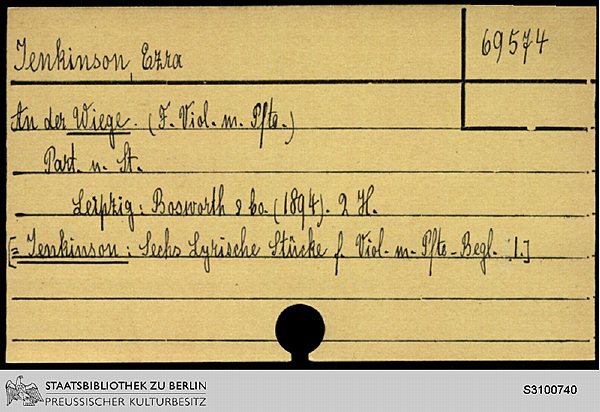 Jenkinson, Ezra
69574
An der Wiege. (F. Viol. m. Pfte.)
Part. u. St.
Leipzig: Bosworth & Co. (1894). 2 H.
[= Jenkinson: Sechs Lyrische Stücke f. Viol. m. Pfte-Begl. 1.]
STAATSBIBLIOTHEK ZU BERLIN
PREUSSISCHER KULTURBESITZ
S3100740